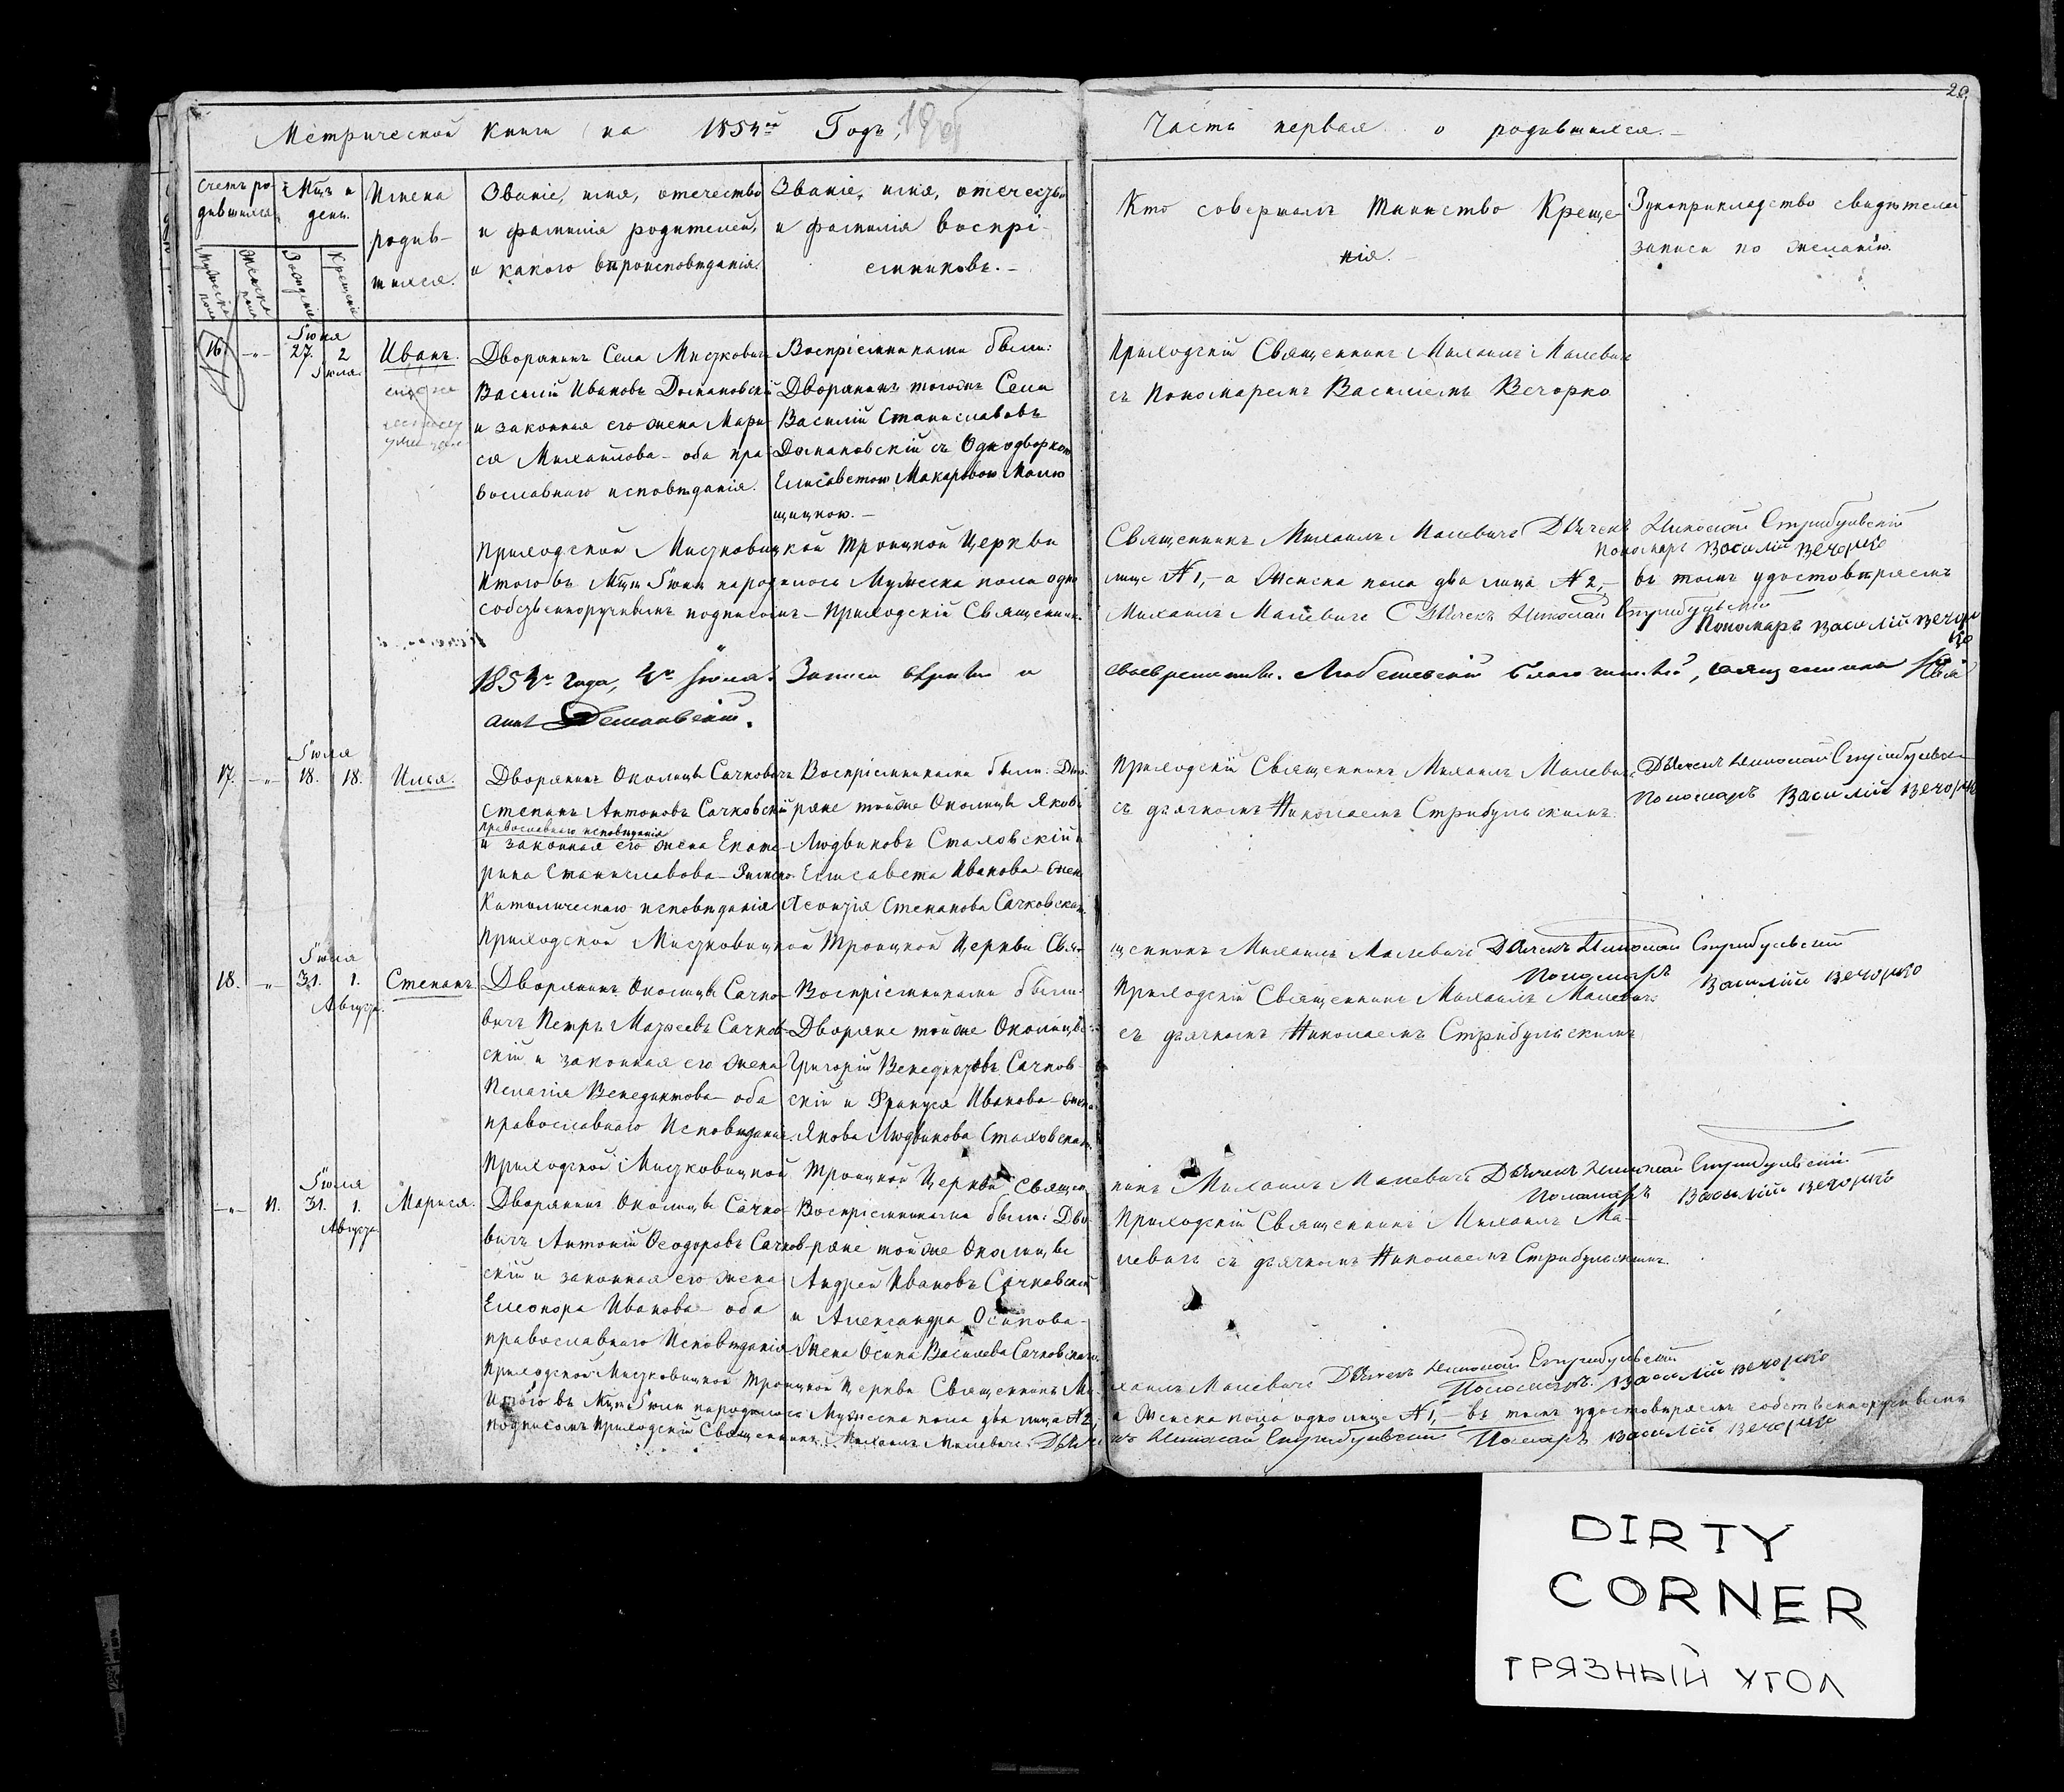 20.
Метрической книги на 1854й Годъ,
Часть первая о родившихся.
Счетъ ро-
дившихся
Мужеска пола
Женска пола
Мцъ и
день.
Рожденія
Крещенія
Имена
родив-
шихся.
Званіе, имя, отечество
и фамилія родителей,
и какого вѣроисповѣданія.
Званіе, имя, отечество
и фамилія воспрі-
емниковъ.
Кто совершалъ Таинство Креще-
нія.
Рукоприкладство свидѣтелей
записи по желанію.
16. Іюня 27. 2 Іюля.
Иванъ.
Дворянинъ Села Мистковичъ
Василій Ивановъ Домановскій
и законная его жена Мари-
ся Михайлова - оба пра-
вославнаго исповѣданія.
Воспріемниками были:
Дворянинъ тогожъ Села
Василій Станиславовъ
Домановскій съ Однодворкою
Елисаветою Макаровою
щицкою.
Приходскій Священникъ Михаилъ Малевичъ
съ Пономаремъ Василіемъ Вечорко
Приходской Мистковицкой Троицкой Церкви
Священникъ Михаилъ Малевичъ Дьячекъ Николай Стрибульскій
Пономарь Василій Вечорко
Итого въ Мцѣ Іюнѣ народилось Мужеска пола одно
лице №1, - а Женска пола два лица №2, - въ томъ удостовѣряемъ
собственноручнымъ подписомъ - Приходскій Священникъ
Михаилъ Малевичъ Дьячекъ Николай Стрибульскій
Пономарь Василій Вечор
ко
1854го года, Іюля Записи вѣрны и
своевременны. Любешевскій благочинный, священникъ
17. Іюля 18. 18.
Илья.
Дворянинъ Околицы Сачковичъ
Степанъ Антоновъ Сачковскій
православнаго исповѣданія
и законная его жена Екате-
рина Станиславова - Римско-
Католическаго исповѣданія
Воспріемниками были: Дво-
ряне тойже Околицы Яковъ
Людвиковъ Стаховскій и
Елисавета Иванова - жена
Леонтія Степанова Сачковскаго.
Приходскій Священникъ Михаилъ Малевичъ
съ дьячкомъ Николаемъ Стрибульскимъ.
Дьячекъ Николай Стрибульскій
Пономарь Василій Вечорко
Приходской Мистковицкой Троицкой Церкви Свя-
щенникъ Михаилъ Малевичъ Дьячекъ Николай Стрибульскій
Пономарь Василій Вечорко
18. Іюля 31. 1. Августа.
Степанъ.
Дворянинъ Околицы Сачко-
вичъ Петръ Матѳеевъ Сачков-
скій и законная его жена
Пелагія Венедиктова - оба
православнаго Исповѣданія.
Воспріемниками были:
Дворяне тойже Околицы
Григорій Венедиктовъ Сачков-
скій и Франуся Иванова - жена
Якова Людвикова Стаховскаго.
Приходскій Священникъ Михаилъ Малевичъ
съ дьячкомъ Николаемъ Стрибульскимъ
Приходской Мистковицкой Троицкой Церкви Священ-
никъ Михаилъ Малевичъ Дьячекъ Николай Стрибульскій
Пономарь Василій Вечорко
11. Іюля 31. 1. Августа
Марися.
Дворянинъ Околицы Сачко-
вичъ Антоній Ѳеодоровъ Сачков-
скій и законная его жена
Елеонора Иванова - оба
православнаго Исповѣданія
Воспріемниками были: Дво-
ряне тойже Околицы
Андрей Ивановъ Сачковскій
и Александра Осипова -
Жена Осипа Васильева Сачковскаго.
Приходскій Священникъ Михаилъ Ма-
левичъ съ дьячкомъ Николаемъ Стрибульскимъ.
Приходской Мистковицкой Троицкой Церкви Священникъ Ми-
хаилъ Малевичъ Дьячекъ Николай Стрибульскій
Пономарь Василій Вечорко
Итого въ Мцѣ Іюлѣ народилось Мужеска пола два лица №2,
а Женска пола одно лице №1, - въ томъ удостовѣряемъ собственноручнымъ
подписомъ Приходскій Священникъ Михаилъ Малевичъ. Дьяче
къ Николай Стрибульскій Пономарь Василій Вечорко
DIRTY
CORNER
ГРЯЗНЫЙ УГОЛ